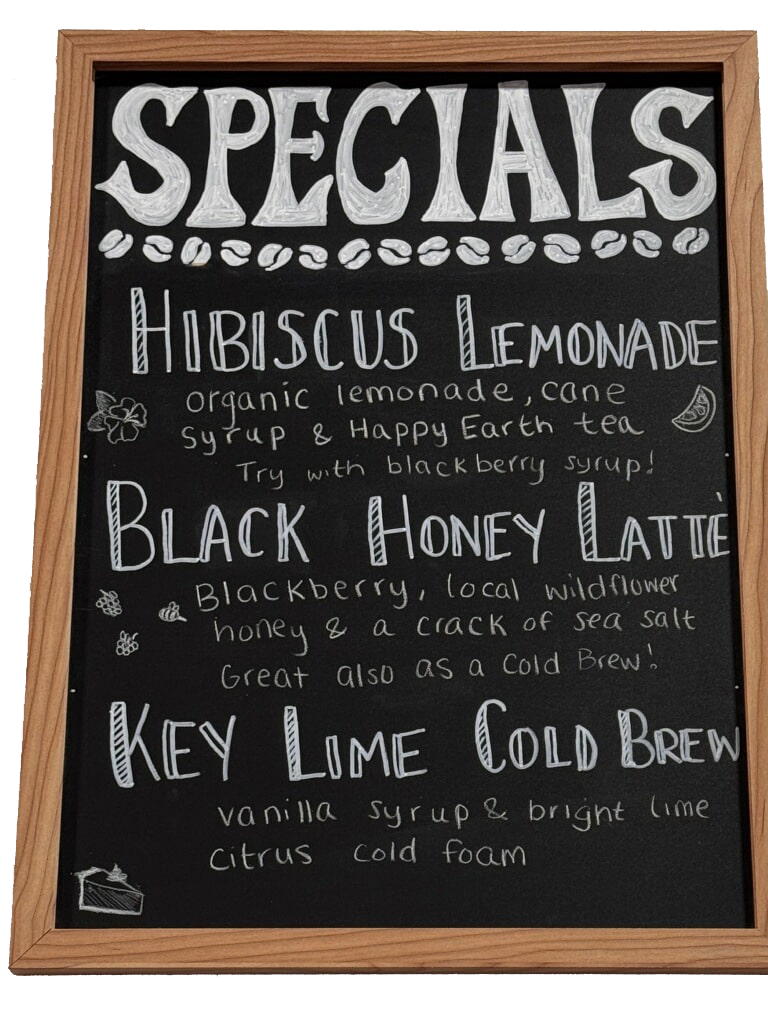 SPECIALS
HIBISCUS LEMONADE
organic lemonade, cane
syrup & Happy Earth tea
Try with blackberry syrup!
BLACK HONEY LATTÈ
Blackberry, local wildflower
honey & a crack of sea salt
Great also as a Cold Brew!
KEY LIME COLD BREW
vanilla syrup & bright lime
citrus cold foam